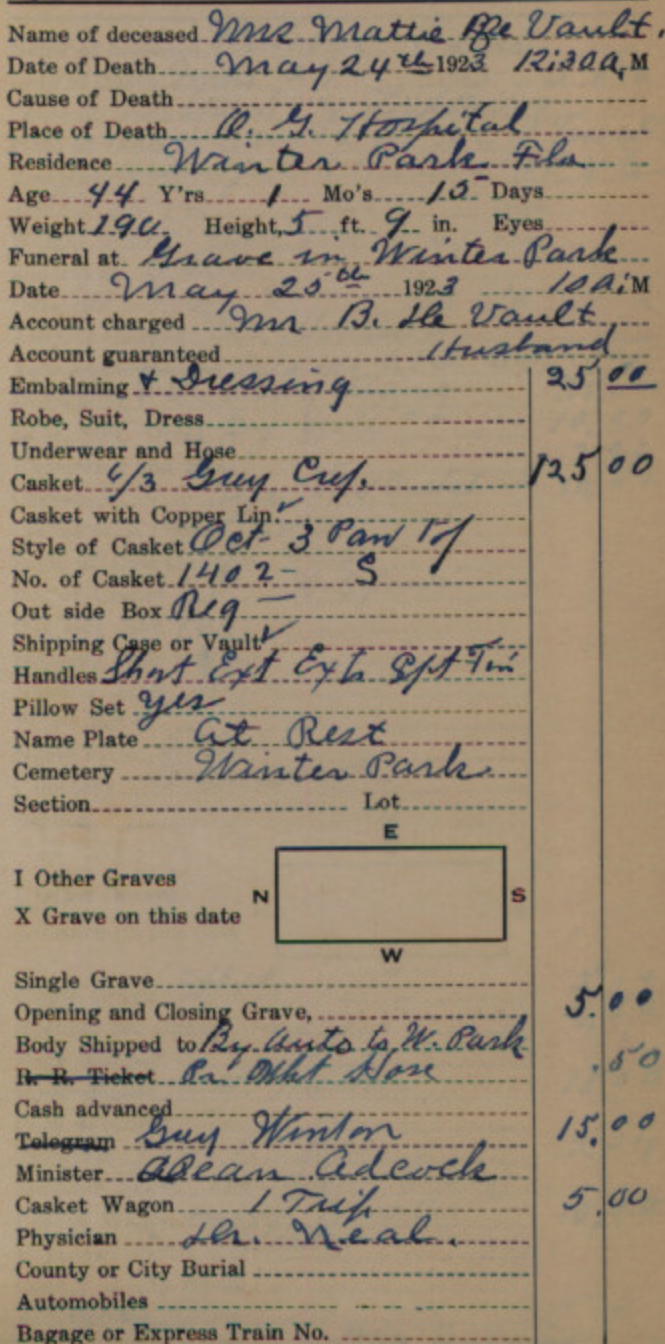 Name of deceased Mrs Mattie De Vault.
Date of Death May 24th 1923 12:30 A, M
Cause of Death
Place of Death O. G. Hospital
Residence Winter Park Fla
Age 44 Y'rs 1 Mo's 15 Days
Weight 190 Height, 5 ft. 9 in. Eyes
Funeral at Grave in Winter Park
Date May 25th 1923 10 a; M
Account charged Mr B. De Vault
Account guaranteed Husband
Embalming & Dressing 25 00
Robe, Suit, Dress
Underwear and Hose
Casket 6/3 Grey Crep. 125 00
Casket with Copper Lin.
Style of Casket Oct- 3 Pan
No. of Casket 1402- S
Out side Box Reg -
Shipping Case or Vault
Handles Short Ext Tin
Pillow Set yes
Name Plate At Rest
Cemetery Winter Park
Section Lot
E
I Other Graves
N S
X Grave on this date
W
Single Grave
Opening and Closing Grave, 5.00
Body Shipped to By Auto to W. Park
R. R. Ticket Pr Hose .50
Cash advanced
Telegram Guy Winton 15.00
Minister Dean Adcock
Casket Wagon 1 Trip 5.00
Physician Dr. Neal.
County or City Burial
Automobiles
Bagage or Express Train No.